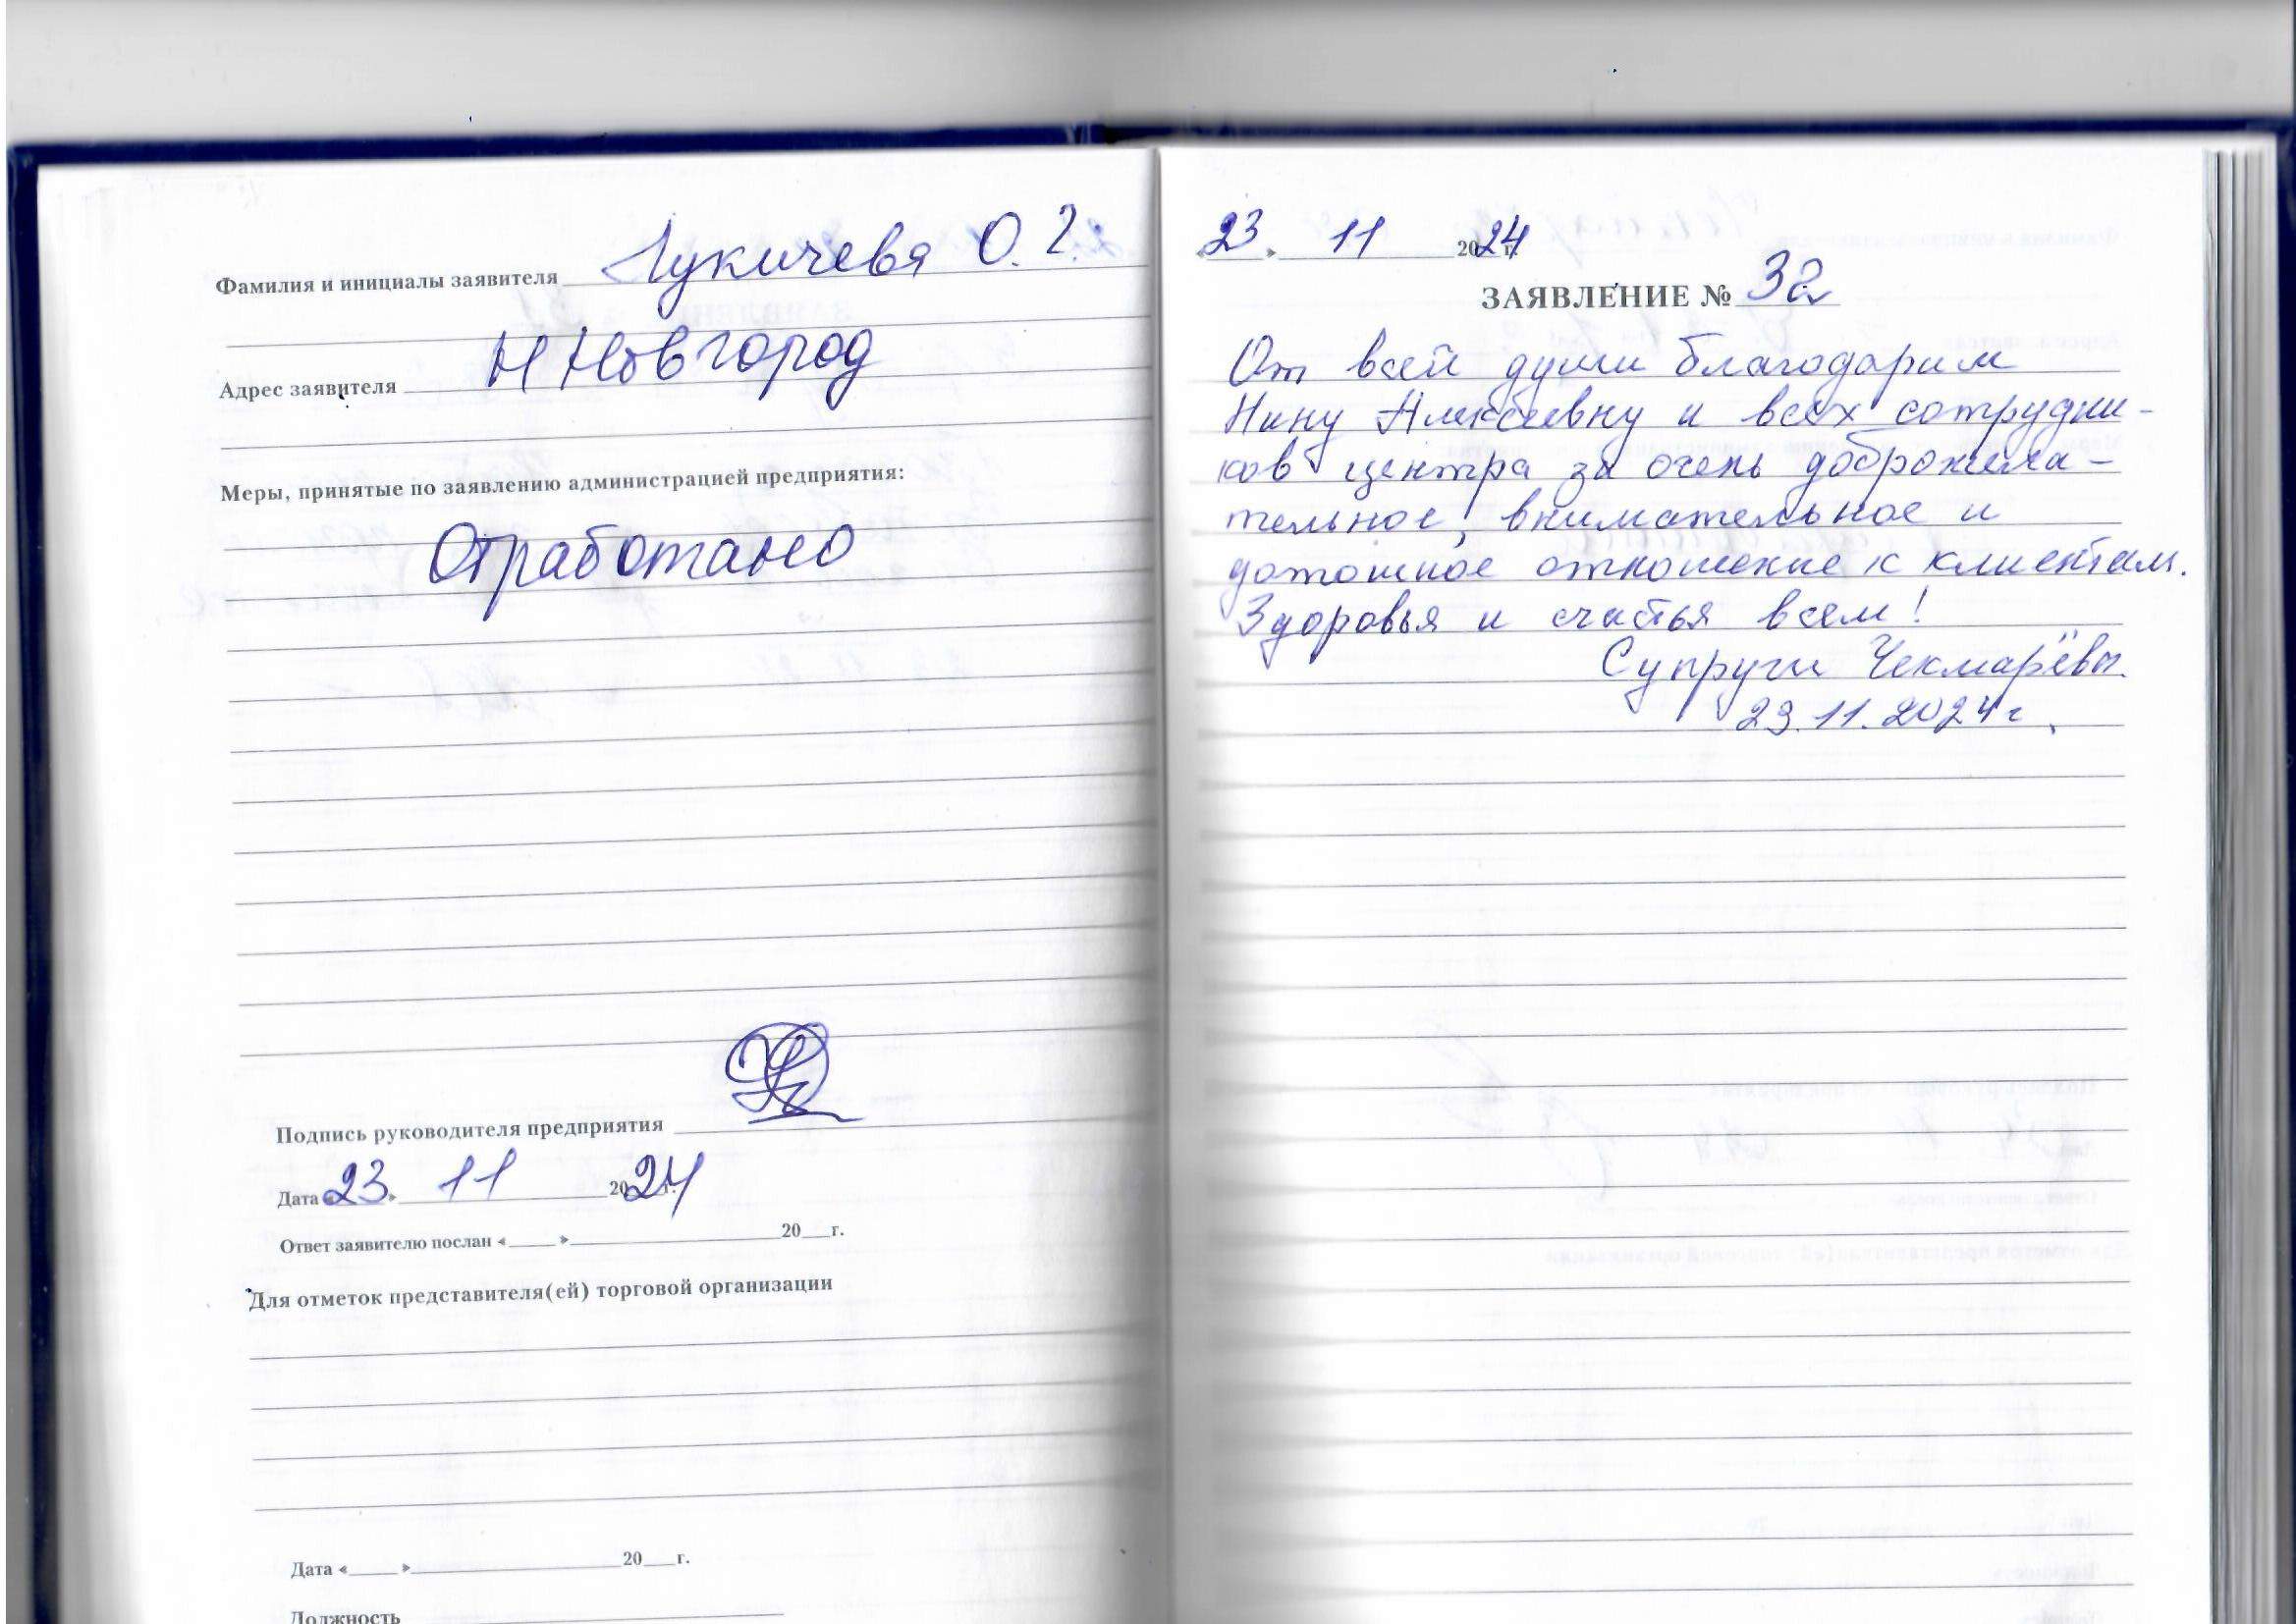 Фамилия и инициалы заявителя Лукичева О. Г
Адрес заявителя Н Новгород
Меры, принятые по заявлению администрацией предприятия:
Отработано
Подпись руководителя предприятия
Дата «23» 11 2024 г.
Ответ заявителю послан «____» 20__г.
Для отметок представителя(ей) торговой организации
Дата «____» 20__г.
Должность
«23» 11 2024 г
ЗАЯВЛЕНИЕ № 32
От всей души благодарим
Нину Алексеевну и всех сотрудни-
ков центра за очень доброжела-
тельное, внимательное и
дотошное отношение к клиентам.
Здоровья и счастья всем!
Супруги Чекмарёвы.
23.11.2024г.